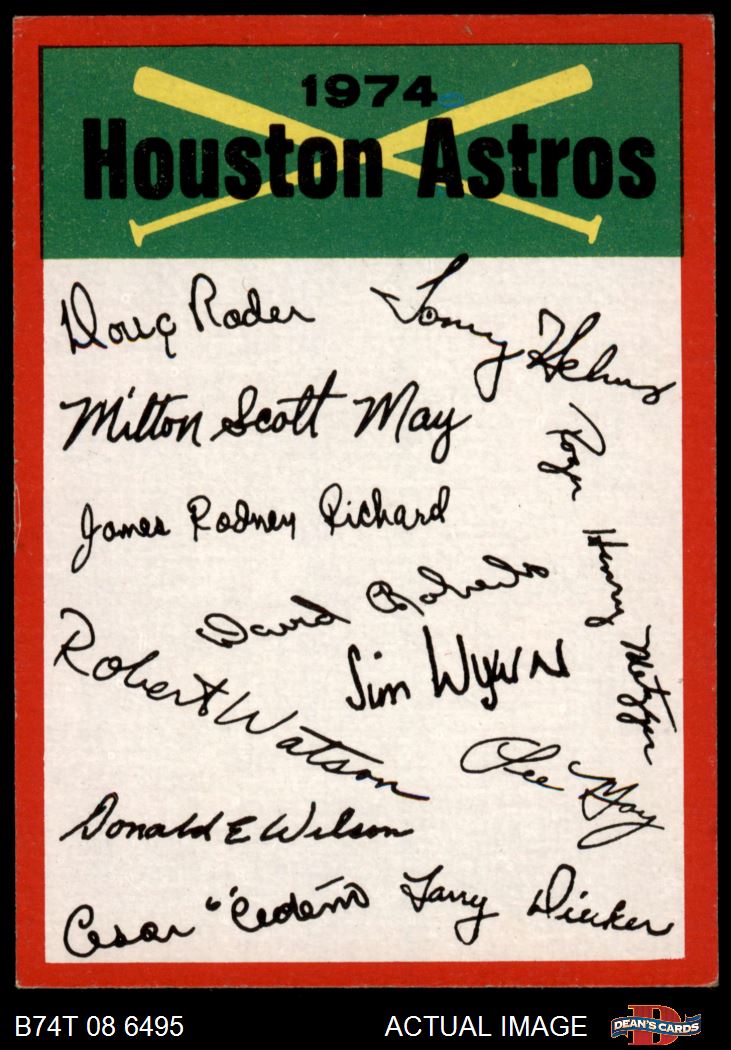 1974
Houston Astros
Doug Rader
Tommy Helms
Milton Scott May
Roger Henry Metzger
James Rodney Richard
David Roberts
Robert Watson
Jim Wynn
Lee May
Donald E Wilson
Cesar "Cedeño
Larry Dierker
B74T 08 6495
ACTUAL IMAGE
D
DEAN'S CARDS